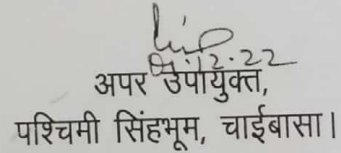 12.22
अपर उपायुक्त,
पश्चिमी सिंहभूम, चाईबासा।